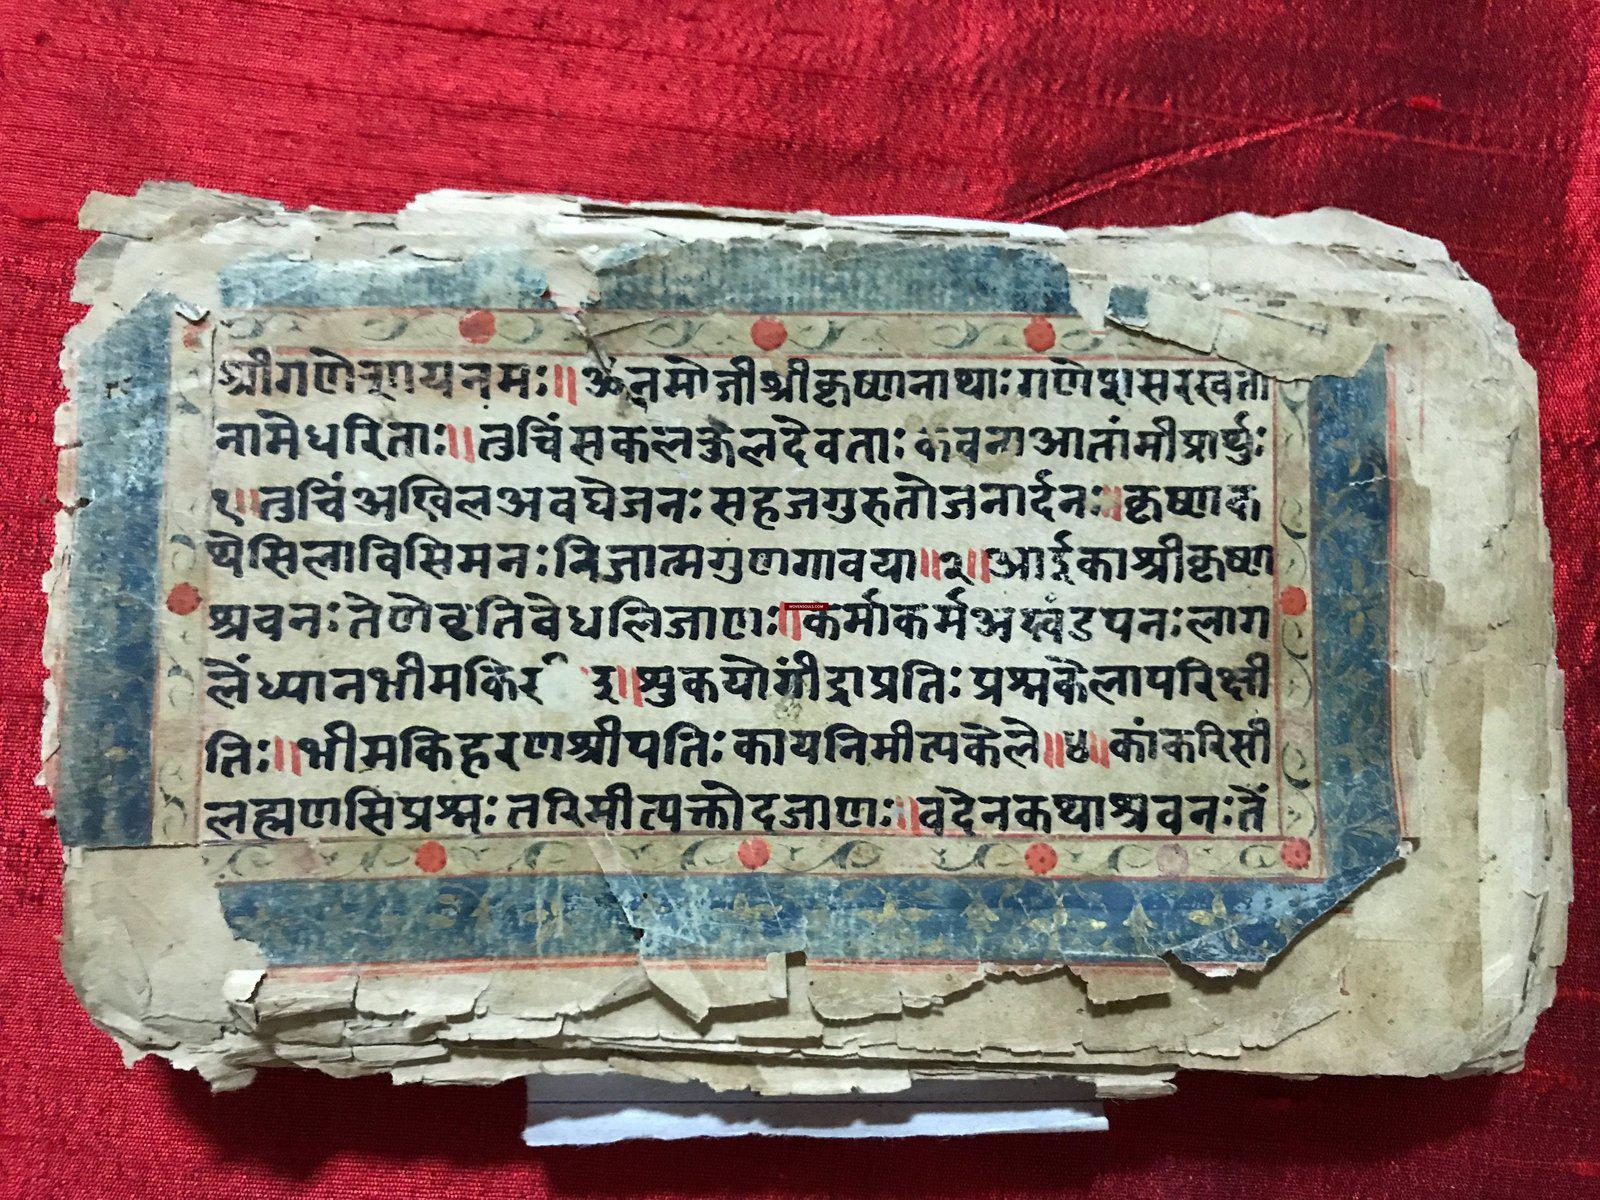 श्रीगणेशायनमः॥ॐनमोजीश्रीकृष्णनाथाः गणेशसरस्वता
नामेधरिताः॥तुचिंसकलकुलदैवताः कवना आतांमीप्रार्थुः
१॥तुचिंअखिलअवघेजनः सहजगुरुतोजनार्दनः॥कृष्णक
थेसिलाविसिमनः निजात्मगुणगावया॥२॥आईकाश्रीकृष्ण
श्रवनः तेणेवृतिवेधलिजाणः॥कर्माकर्मअखंडपनः लाग
लेंध्यानभीमकि ॥शुकयोगींद्राप्रतिः प्रश्नकेलापरिक्षी
तिः॥भीमकिहरणश्रीपतिः कायनिमीत्यकेले॥४॥कांकरिसी
लह्मणसिप्रश्नः तरिमीत्यक्तोदजाणः॥वदेनकथाश्रवनः तें
WOVENSOULS.COM